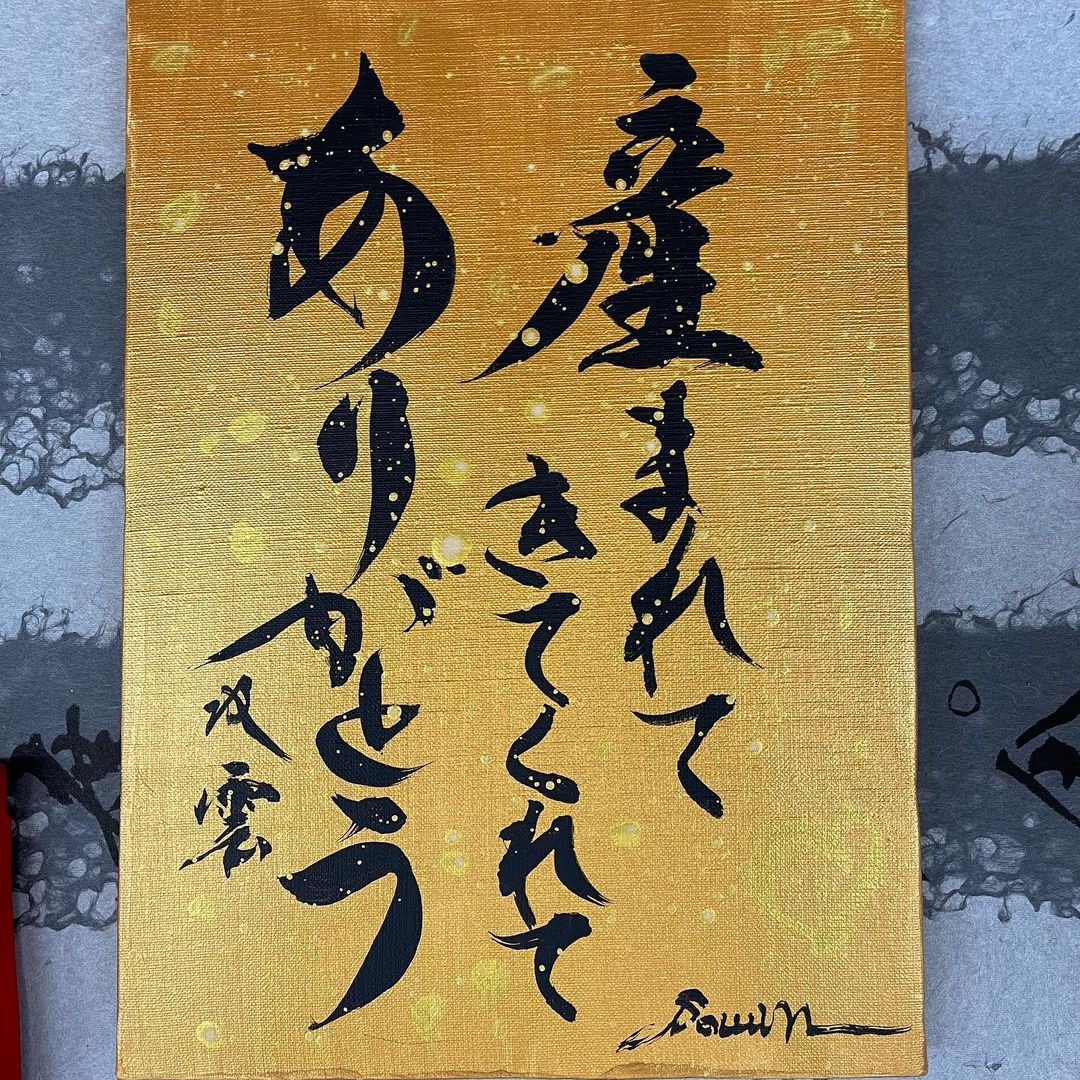 産まれて
きてくれて
ありがとう